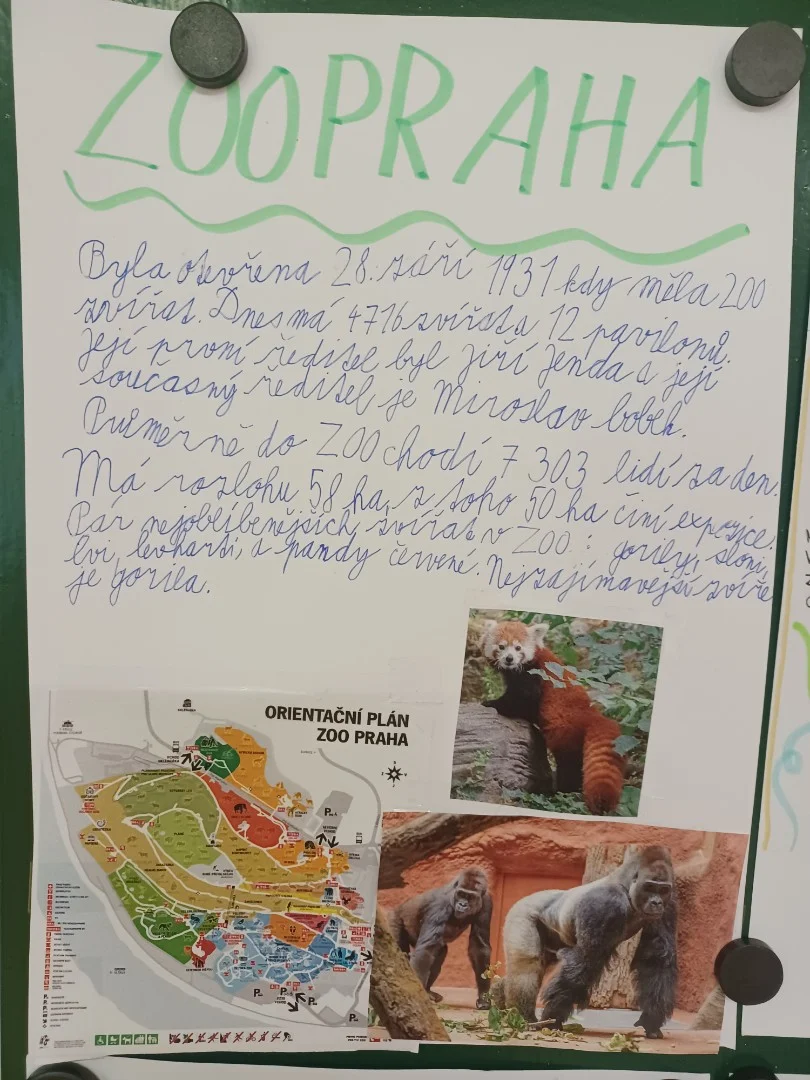 ZOO PRAHA
Byla otevřena 28. září 1931 kdy měla 200
zvířat. Dnes má 4716 zvířat a 12 pavilonů.
Její první ředitel byl Jiří Jenda a její
současný ředitel je Miroslav bobek.
Průměrně do ZOO chodí 7 303 lidí za den.
Má rozlohu 58 ha, z toho 50 ha činí expozice.
Pár nejoblíbenějších zvířat v ZOO: gorily, sloni,
lvi, levharti, a pandy červené. Nejzajímavější zvíře
je gorila.
ORIENTAČNÍ PLÁN
ZOO PRAHA